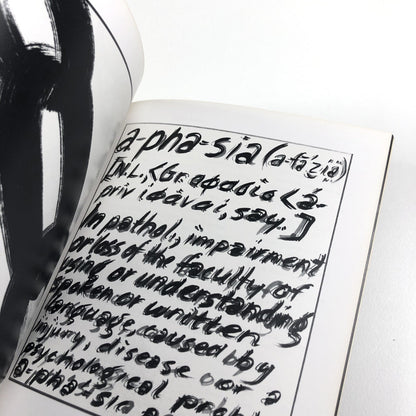 a-pha=sia (a-fā'ziä)
[N.L., < Gr. aφaσia < á-
priv. φávai, say.]
In pathol., impairment
or loss of the faculty of
using or understanding
spoken or written
language, caused by
injury, disease or a
psychological
a-phas-sia